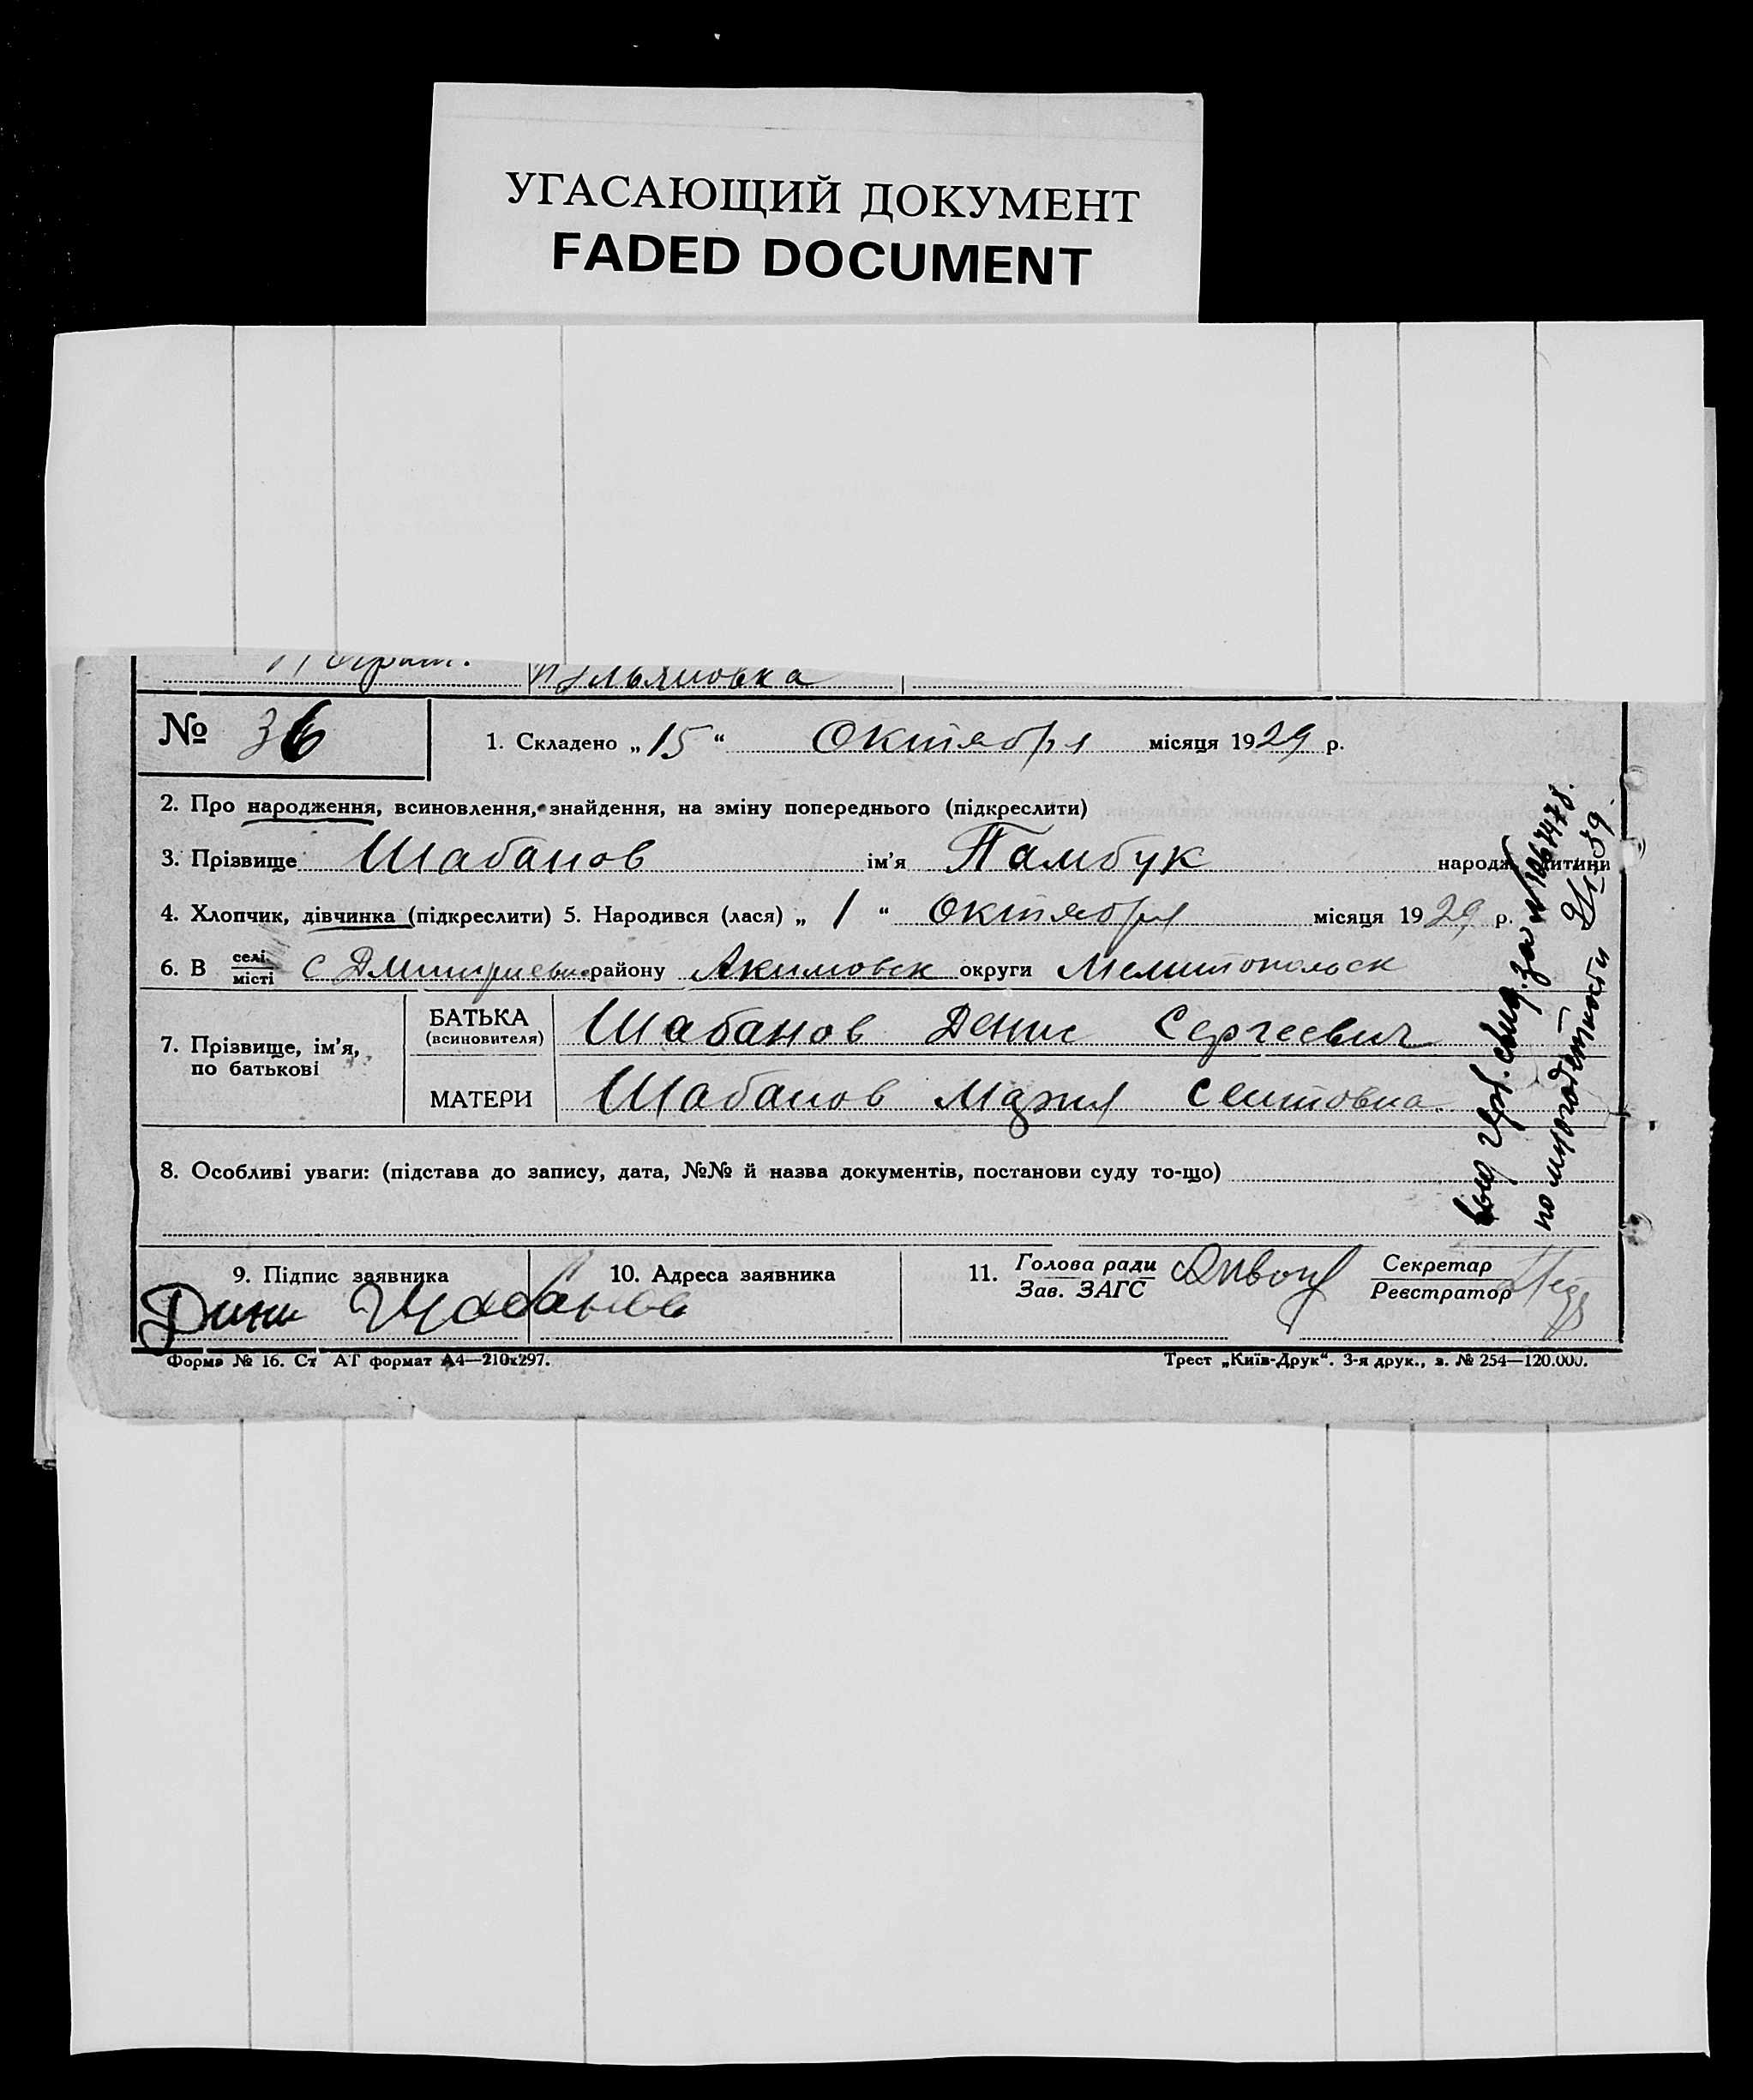 УГАСАЮЩИЙ ДОКУМЕНТ
FADED DOCUMENT
№ 36
1. Складено „15“ Октября місяця 1929 р.
2. Про народження, всиновлення, знайдення, на зміну попереднього (підкреслити)
3. Прізвище Шабанов ім’я Памбук народж. дитини
4. Хлопчик, дівчинка (підкреслити) 5. Народився (лася) „1“ Октября місяця 1929 р.
6. В селі місті с Дмитриевк району Акимовск округи Мелитопольск
7. Прізвище, ім’я, по батькові
БАТЬКА (всиновителя) Шабанов Денис Сергеевич
МАТЕРИ Шабанов Мария Сеитовна
8. Особливі уваги: (підстава до запису, дата, №№ й назва документів, постанови суду то-що)
9. Підпис заявника
10. Адреса заявника
11. Голова ради Зав. ЗАГС
Секретар Реєстратор
Шабанов
Форма № 16. Ст АТ формат А4—210х297.
Трест „Київ-Друк“. 3-я друк., з. № 254—120.000.
выд герб. свид. за №
по многодетности